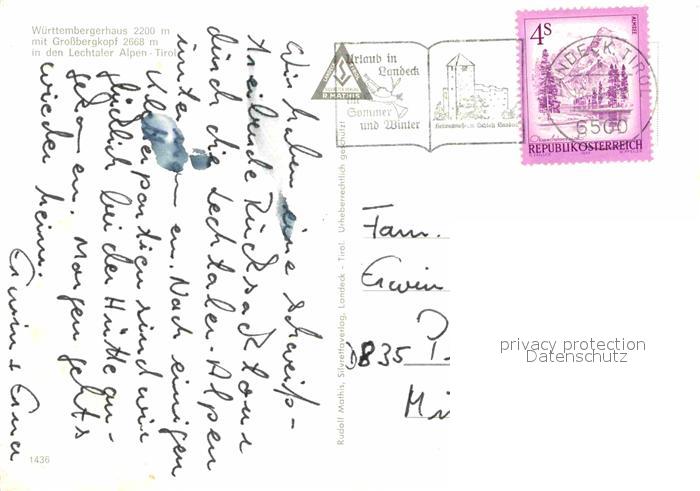 Württembergerhaus 2200 m
mit Großbergkopf 2668 m
in den Lechtaler Alpen - Tirol
Wir haben eine schweiß-
treibende Rucksacktour
durch die Lechtaler-Alpen
unter en. Nach einigen
Kletterpartien sind wir
glücklich bei der Hütte an-
gekom en. Morgen geht's
wieder heim.
Erwin + Erna
1436
Rudolf Mathis, Silvrettaverlag, Landeck - Tirol. Urheberrechtlich geschützt!
R. MATHIS
Urlaub in
Landeck
im
Sommer
und Winter
Heimatmuseum Schloß Landeck
LANDECK, TIROL
6500
4S
ALMSEE
REPUBLIK ÖSTERREICH
Fam.
Erwin
D835 P.
Mi
privacy protection
Datenschutz